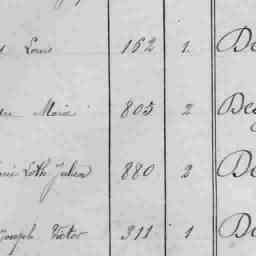 Louis 162 1 De
Marie 805 2 Des
Loth Julien 880 2 De
Joseph Victor 311 1 De